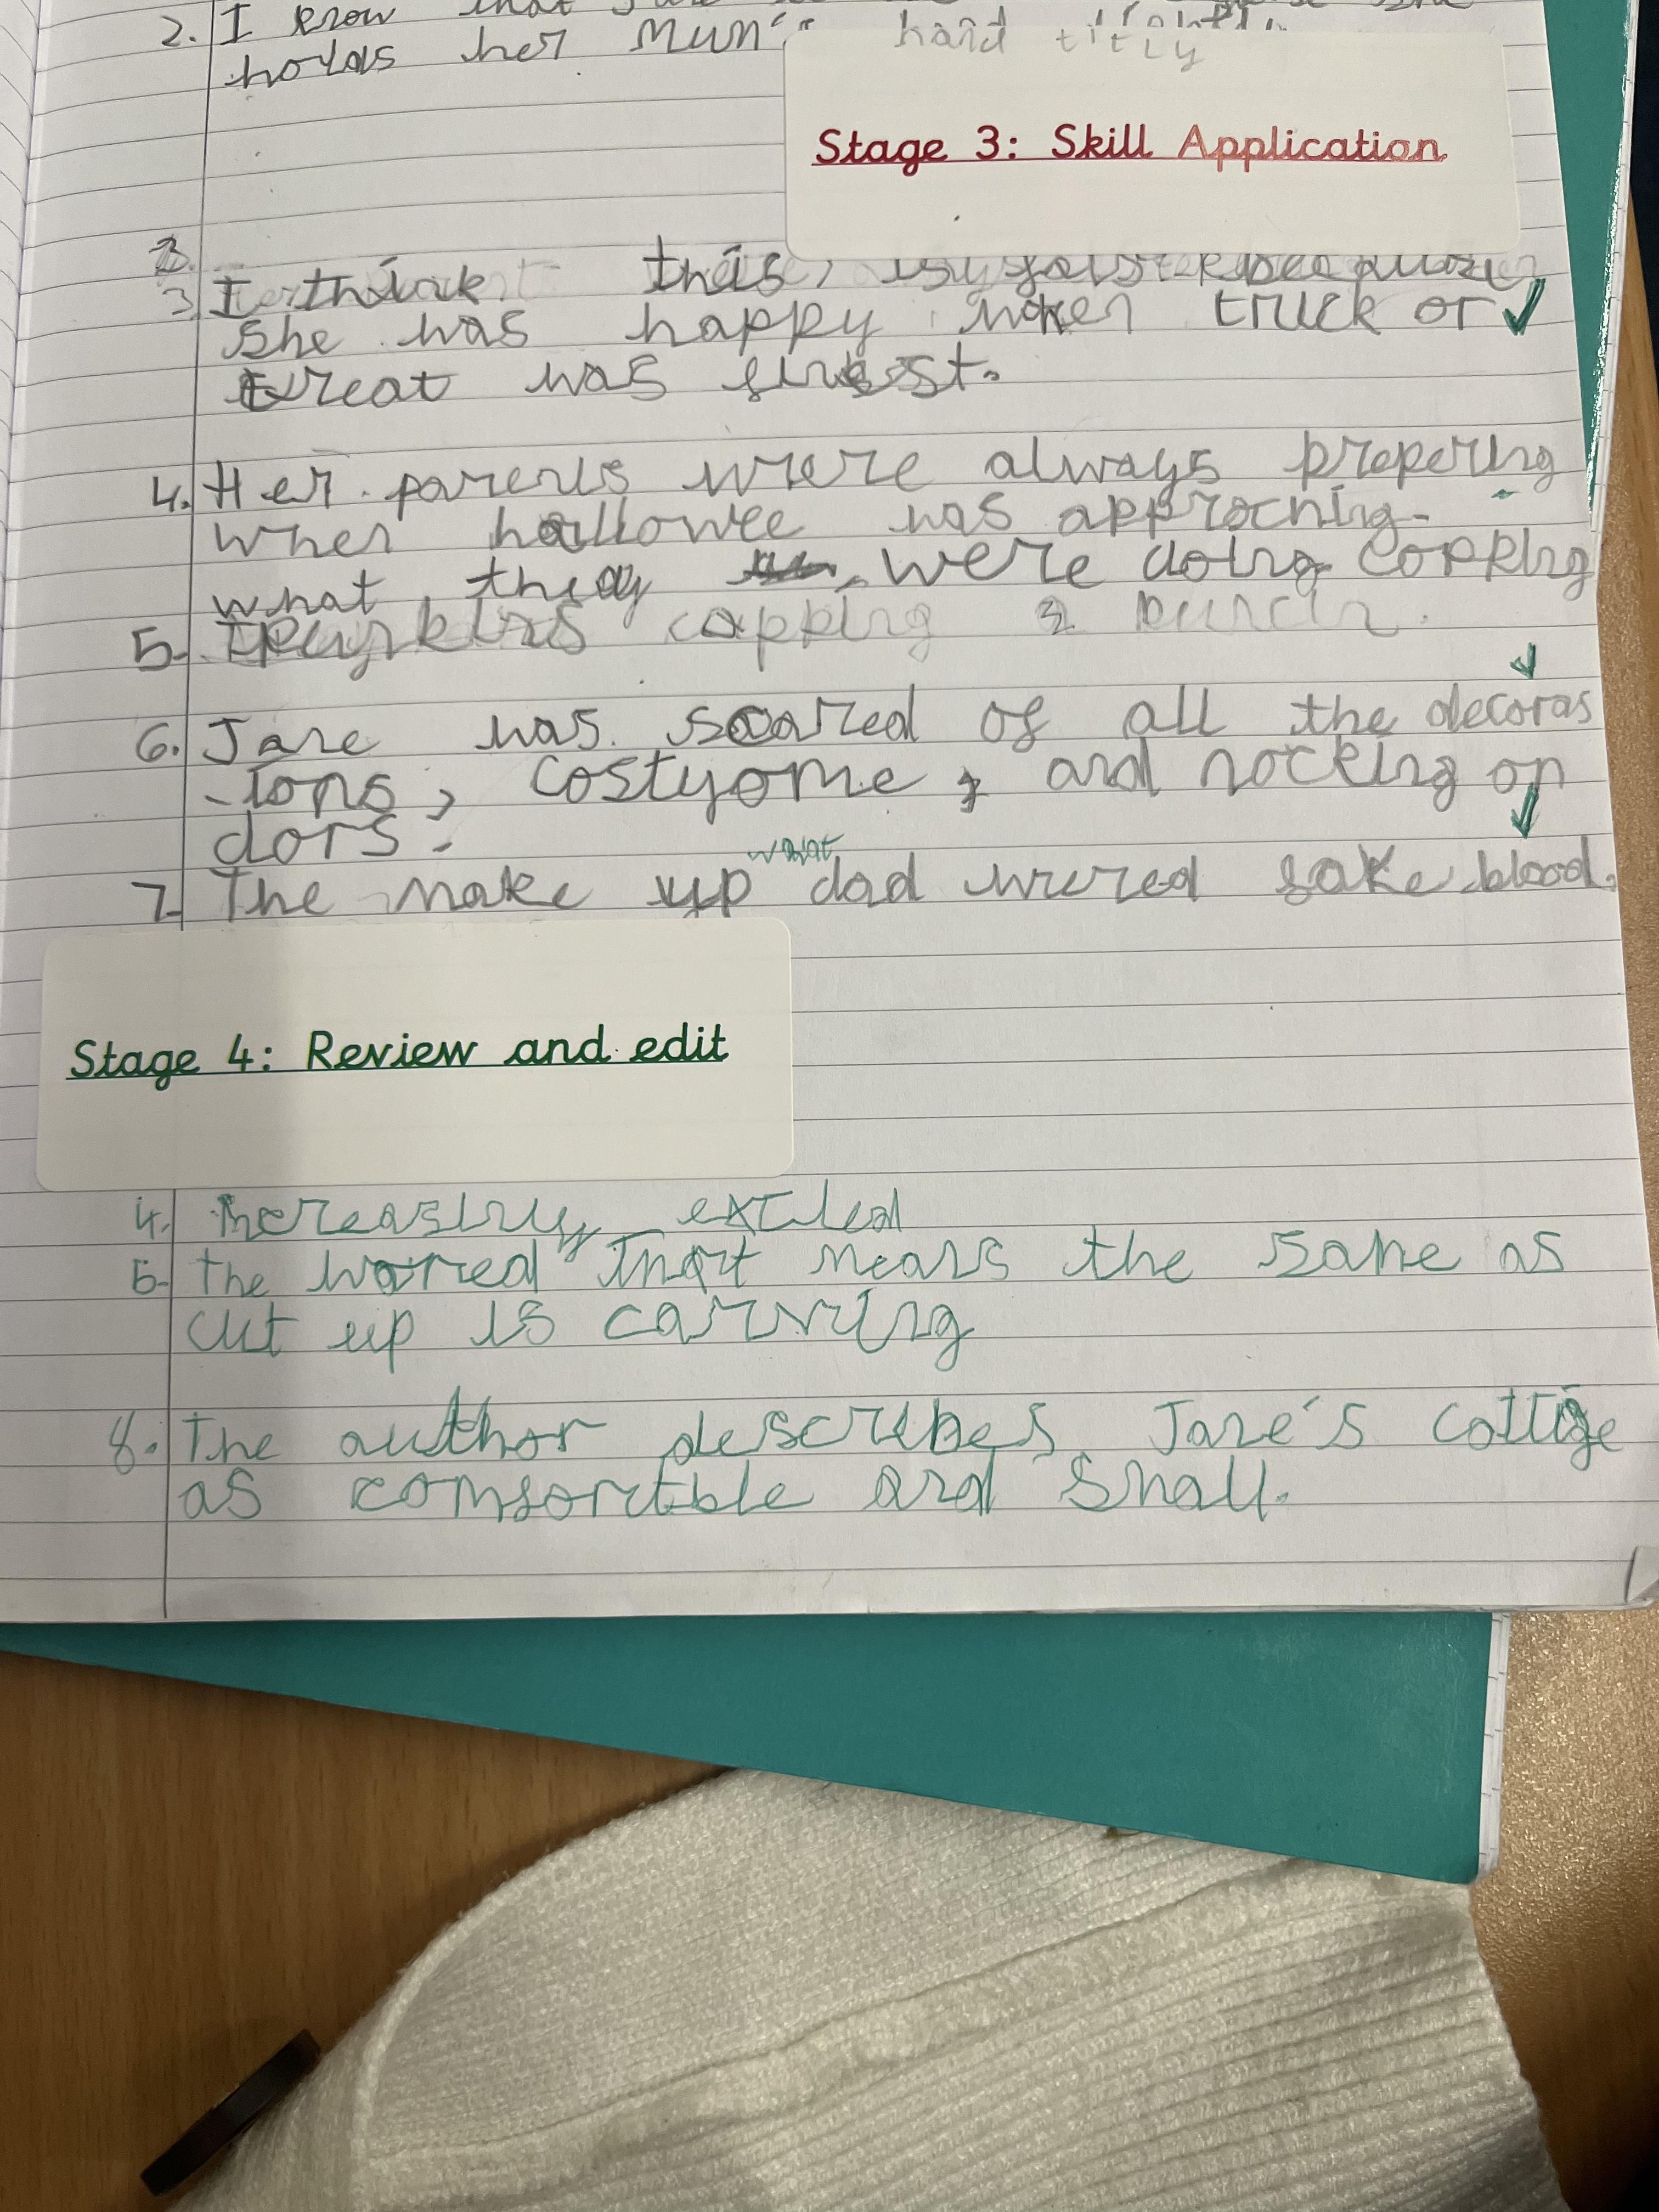 2. I know that
holds her Mum's hand titly
Stage 3: Skill Application
3. I think this is false because
she was happy when trick or
treat was first.
4. Her parents where always prepering
when hallowee was approching.
what they were doing copping
5. capping
6. Jane was scared of all the decoras
-ions, costyome, and nocking on
dors.
7. The make up what dad wered fake blood.
Stage 4: Review and edit
4. increasingly excited
5. The worred that means the same as
cut up is carving
8. The author describes Jane's cottige
as comfortble and small.